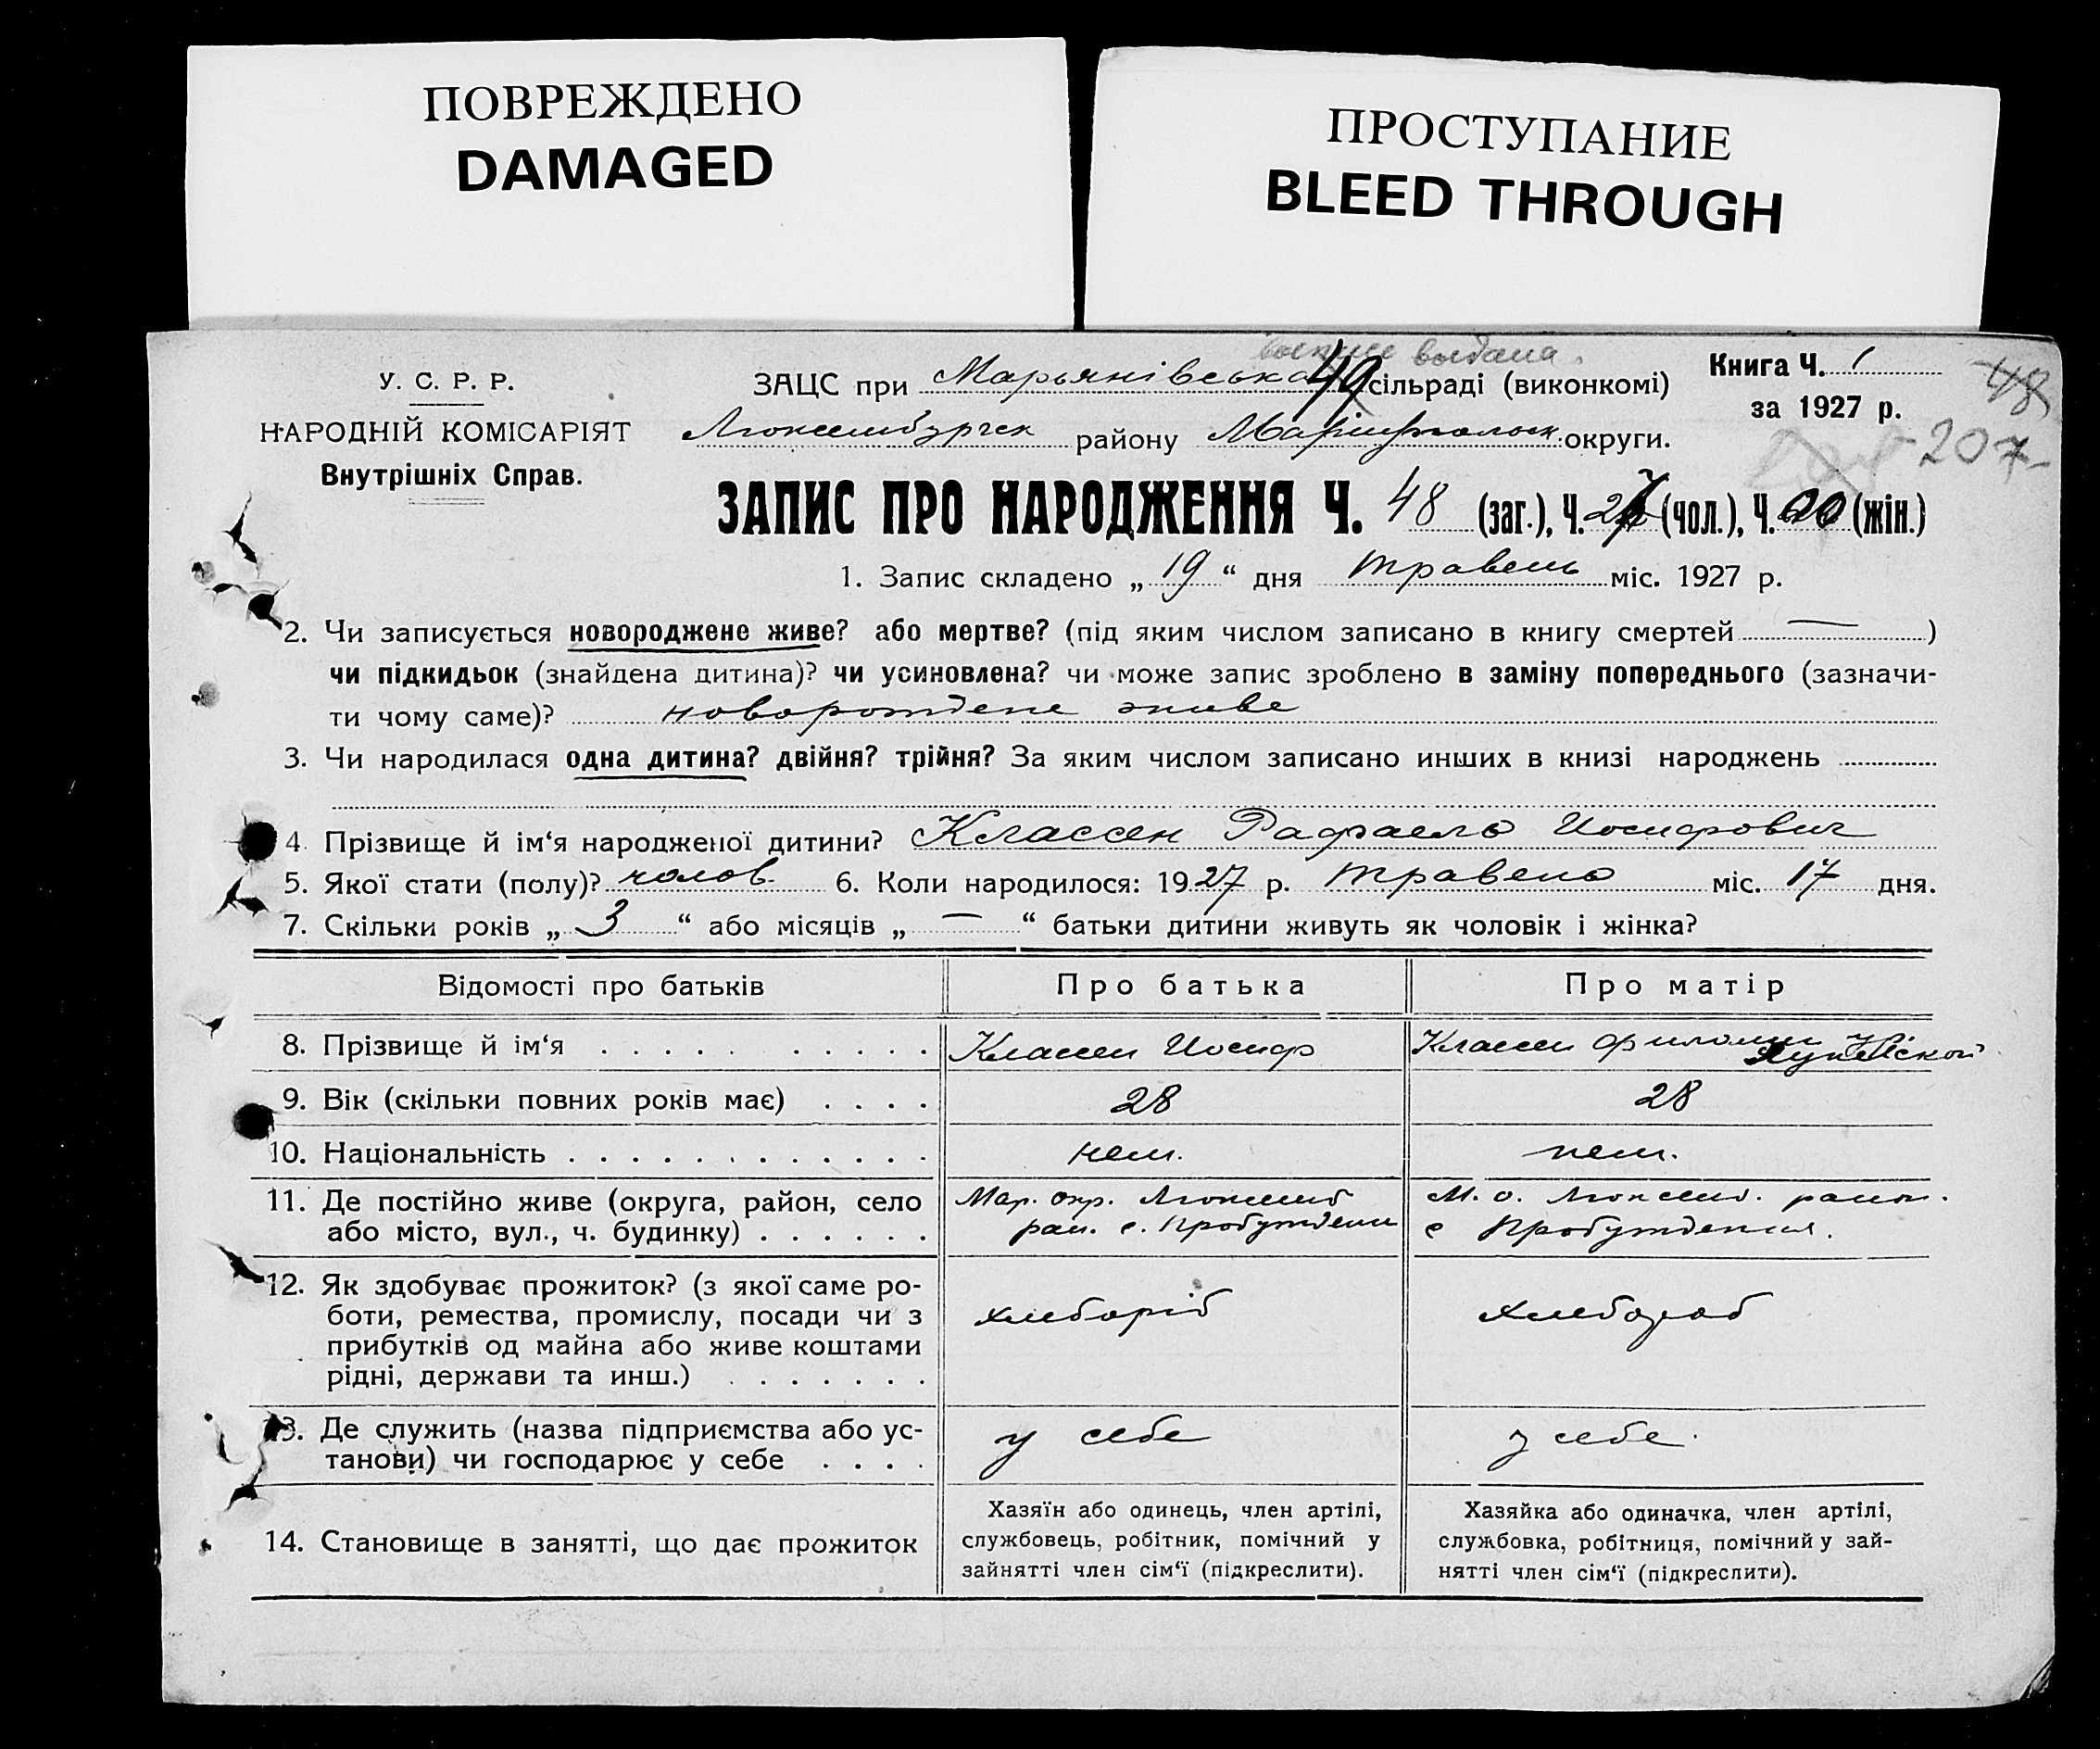 ПОВРЕЖДЕНО
DAMAGED
ПРОСТУПАНИЕ
BLEED THROUGH
выдана.
У. С. Р. Р.
НАРОДНІЙ КОМІСАРІЯТ
Внутрішніх Справ.
ЗАЦС при Марьянівська 49 сільраді (виконкомі)
Люксембургск району Маріупольск. округи.
Книга Ч. 1
за 1927 р.
48
207
ЗАПИС ПРО НАРОДЖЕННЯ Ч. 48 (заг.), Ч. 27 (чол.), Ч. (жін.)
1. Запис складено „ 19 “ дня травень міс. 1927 р.
2. Чи записується новороджене живе? або мертве? (під яким числом записано в книгу смертей — )
чи підкидьок (знайдена дитина)? чи усиновлена? чи може запис зроблено в заміну попереднього (зазначи-
ти чому саме)? новорождене живе
3. Чи народилася одна дитина? двійня? трійня? За яким числом записано инших в книзі народжень
4. Прізвище й ім‘я народженої дитини? Классен Рафаель Иосифович
5. Якої стати (полу)? чолов. 6. Коли народилося: 1927 р. травень міс. 17 дня.
7. Скільки років „ 3 “ або місяців „ — “ батьки дитини живуть як чоловік і жінка?
Відомості про батьків Про батька Про матір
8. Прізвище й ім‘я Классен Иосиф Классен
9. Вік (скільки повних років має) 28 28
10. Національність нем. нем.
11. Де постійно живе (округа, район, село
або місто, вул., ч. будинку)
Мар. окр. Люксемб
рай. с. Пробуждени
М. о. Люксемб. район.
с Пробуждения.
12. Як здобуває прожиток? (з якої саме ро-
боти, ремества, промислу, посади чи з
прибутків од майна або живе коштами
рідні, держави та инш.)
хлеборіб
хлебороб
13. Де служить (назва підприємства або ус-
танови) чи господарює у себе
у себе
у себе.
14. Становище в занятті, що дає прожиток
Хазяїн або одинець, член артілі,
службовець, робітник, помічний у
зайнятті член сім‘ї (підкреслити).
Хазяйка або одиначка, член артілі,
службовка, робітниця, помічний у зай-
нятті член сім‘ї (підкреслити).